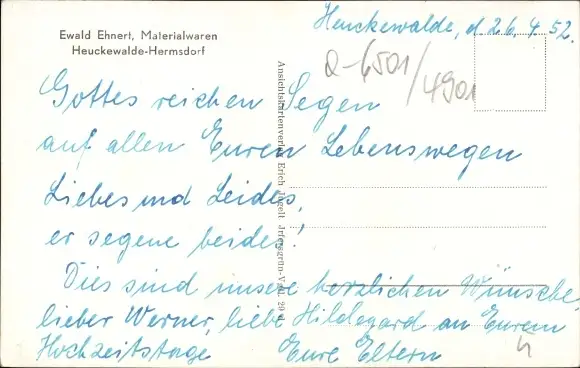 Ewald Ehnert, Materialwaren
Heuckewalde-Hermsdorf
Heuckewalde, d. 26. 4. 52.
Q-6501/4901
Gottes reichen Segen
auf allen Euren Lebenswegen
Liebes und Leides,
er segene beides!
Dies sind unsere herzlichen Wünsche,
lieber Werner, liebe Hildegard an Eurem
Hochzeitstage Eure Eltern
Ansichtskartenverlag Erich